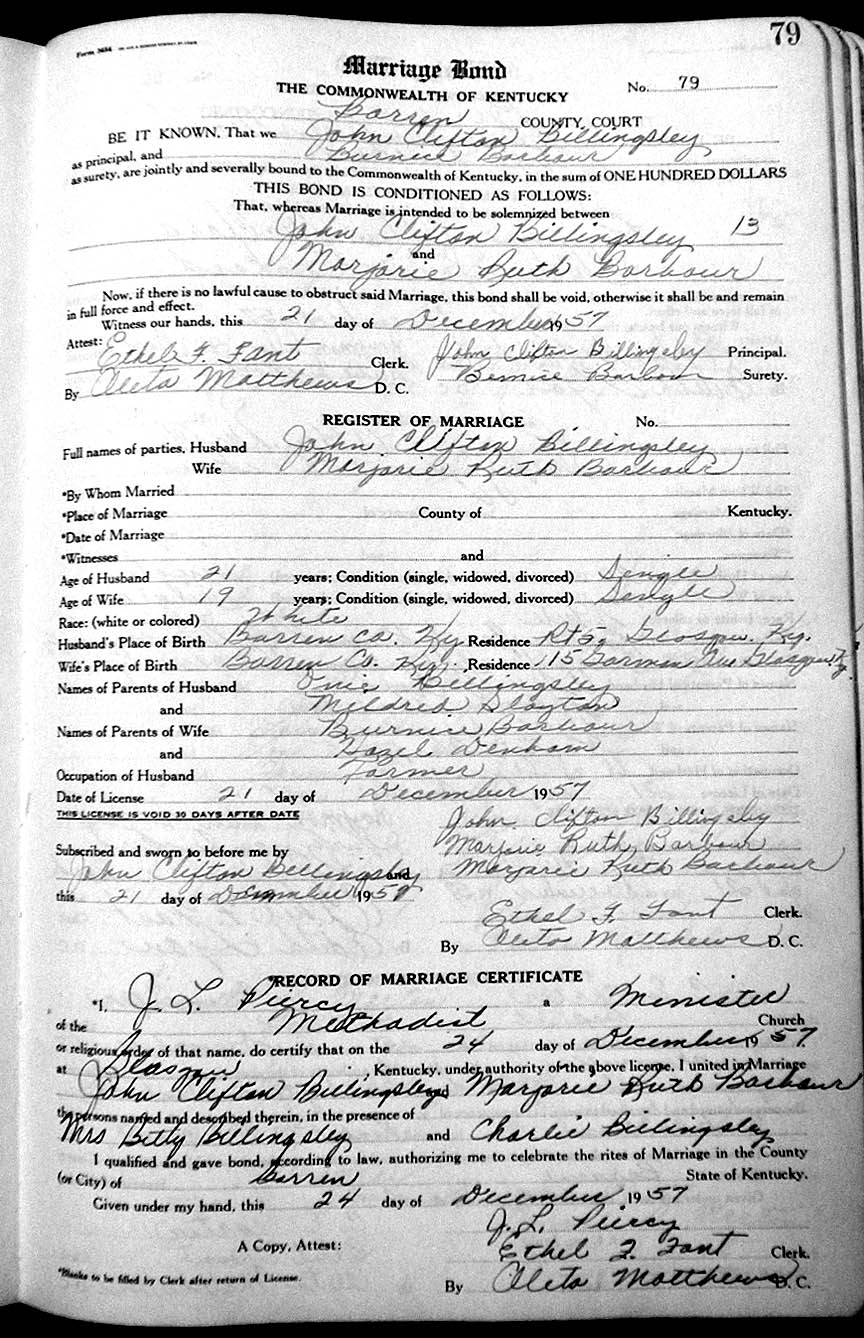 79
Form 3634
Marriage Bond
No. 79
THE COMMONWEALTH OF KENTUCKY
Barren COUNTY, COURT
BE IT KNOWN, That we John Clifton Billingsley
as principal, and Burnice Barbour
as surety, are jointly and severally bound to the Commonwealth of Kentucky, in the sum of ONE HUNDRED DOLLARS
THIS BOND IS CONDITIONED AS FOLLOWS:
That, whereas Marriage is intended to be solemnized between
John Clifton Billingsley 13
and
Marjorie Ruth Barbour
Now, if there is no lawful cause to obstruct said Marriage, this bond shall be void, otherwise it shall be and remain
in full force and effect.
Witness our hands, this 21 day of December 1957
Attest:
Ethel F. Fant Clerk. John Clifton Billingsley Principal.
By Oleta Matthews D. C. Bernice Barbour Surety.
REGISTER OF MARRIAGE No.
Full names of parties, Husband John Clifton Billingsley
Wife Marjorie Ruth Barbour
*By Whom Married
*Place of Marriage County of Kentucky.
*Date of Marriage
*Witnesses and
Age of Husband 21 years; Condition (single, widowed, divorced) Single
Age of Wife 19 years; Condition (single, widowed, divorced) Single
Race: (white or colored) White
Husband's Place of Birth Barren Co. Ky. Residence Rt 5, Glasgow, Ky.
Wife's Place of Birth Barren Co. Ky. Residence 115 Gorman Ave Glasgow Ky.
Names of Parents of Husband Billingsley
and Mildred Slayton
Names of Parents of Wife Burnice Barbour
and Hazel Denham
Occupation of Husband Farmer
Date of License 21 day of December 1957
THIS LICENSE IS VOID 30 DAYS AFTER DATE
John Clifton Billingsley
Marjorie Ruth Barbour
Subscribed and sworn to before me by
John Clifton Billingsley and Marjorie Ruth Barbour
this 21 day of December 1957
Ethel F. Fant Clerk.
By Oleta Matthews D. C.
*RECORD OF MARRIAGE CERTIFICATE
*I, J. L. Piercy a Minister
of the Methodist Church
or religious order of that name, do certify that on the 24 day of December 1957
at Glasgow, Kentucky, under authority of the above license, I united in Marriage
John Clifton Billingsley and Marjorie Ruth Barbour
the persons named and described therein, in the presence of
Mrs Betty Billingsley and Charlie Billingsley
I qualified and gave bond, according to law, authorizing me to celebrate the rites of Marriage in the County
(or City) of Barren State of Kentucky.
Given under my hand, this 24 day of December 1957
J. L. Piercy
A Copy, Attest: Ethel F. Fant Clerk.
*Blanks to be filled by Clerk after return of License. By Oleta Matthews D. C.